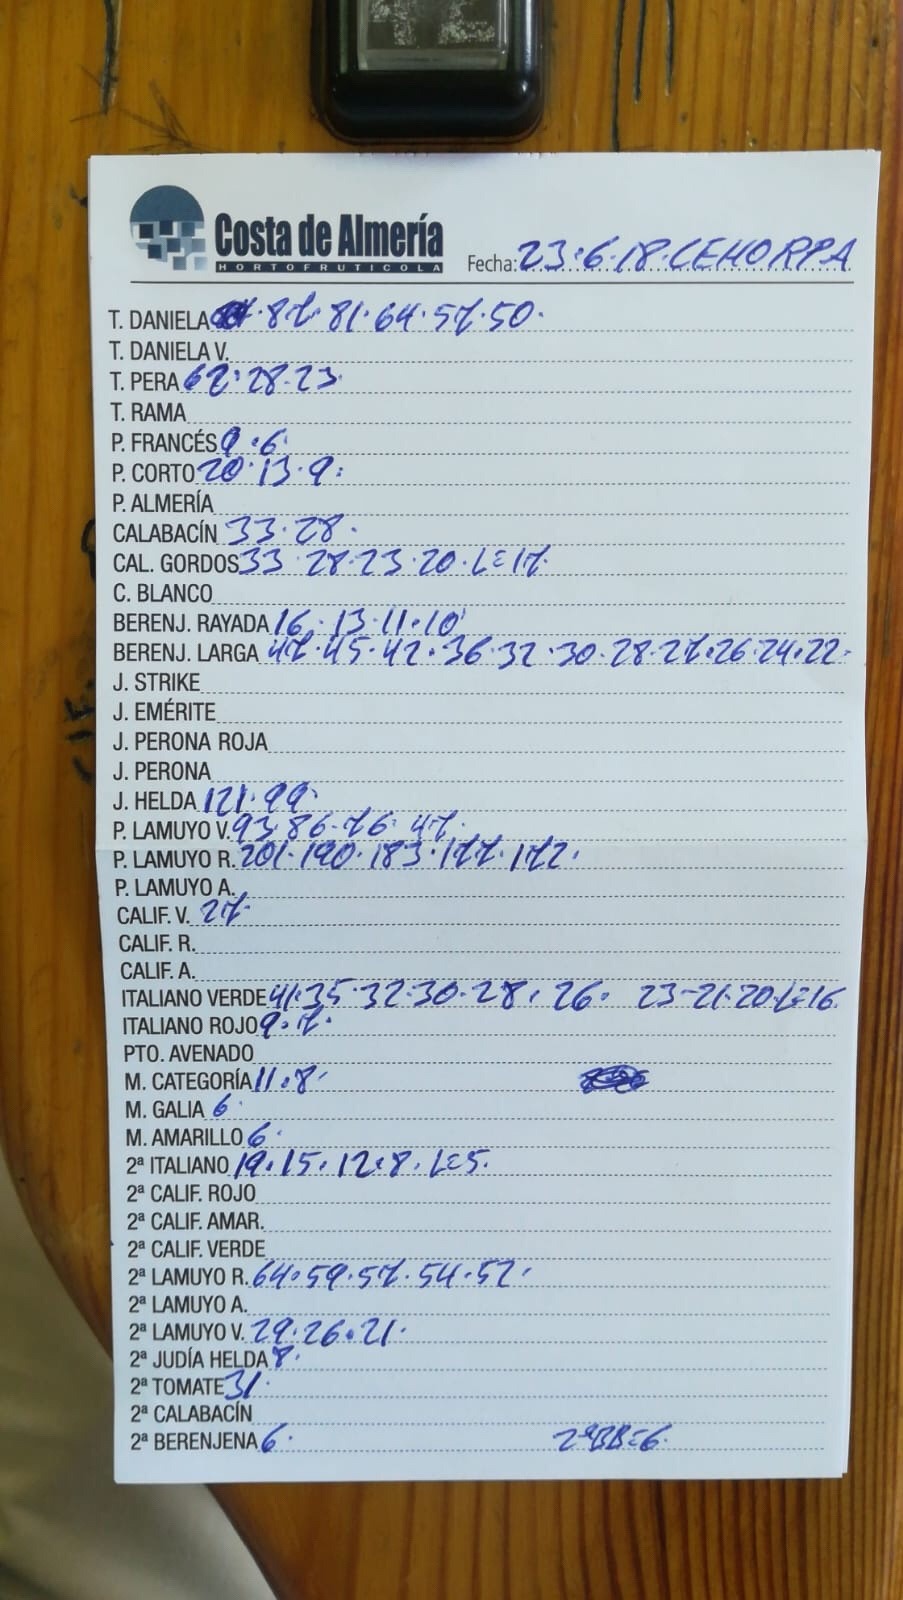 Costa de Almería
HORTOFRUTICOLA
Fecha: 23·6·18·CEHORPA
T. DANIELA 87·81·64·57·50·
T. DANIELA V.
T. PERA 62·28·23·
T. RAMA
P. FRANCÉS 9·6·
P. CORTO 20·13·9·
P. ALMERÍA
CALABACÍN 33·28·
CAL. GORDOS 33·28·23·20·L=17·
C. BLANCO
BERENJ. RAYADA 16·13·11·10
BERENJ. LARGA 47·45·42·36·32·30·28·27·26·24·22·
J. STRIKE
J. EMÉRITE
J. PERONA ROJA
J. PERONA
J. HELDA 121·99·
P. LAMUYO V. 93·86·76·47·
P. LAMUYO R. 201·190·183·177·172·
P. LAMUYO A.
CALIF. V. 27·
CALIF. R.
CALIF. A.
ITALIANO VERDE 41·35·32·30·28·26· 23-21·20·L=16·
ITALIANO ROJO 9·7·
PTO. AVENADO
M. CATEGORÍA 11·8·
M. GALIA 6·
M. AMARILLO 6·
2ª ITALIANO 19·15·12·8·L=5·
2ª CALIF. ROJO
2ª CALIF. AMAR.
2ª CALIF. VERDE
2ª LAMUYO R. 64·59·57·54·52·
2ª LAMUYO A.
2ª LAMUYO V. 29·26·21·
2ª JUDÍA HELDA 8·
2ª TOMATE 31·
2ª CALABACÍN
2ª BERENJENA 6· 2ªBB=6·